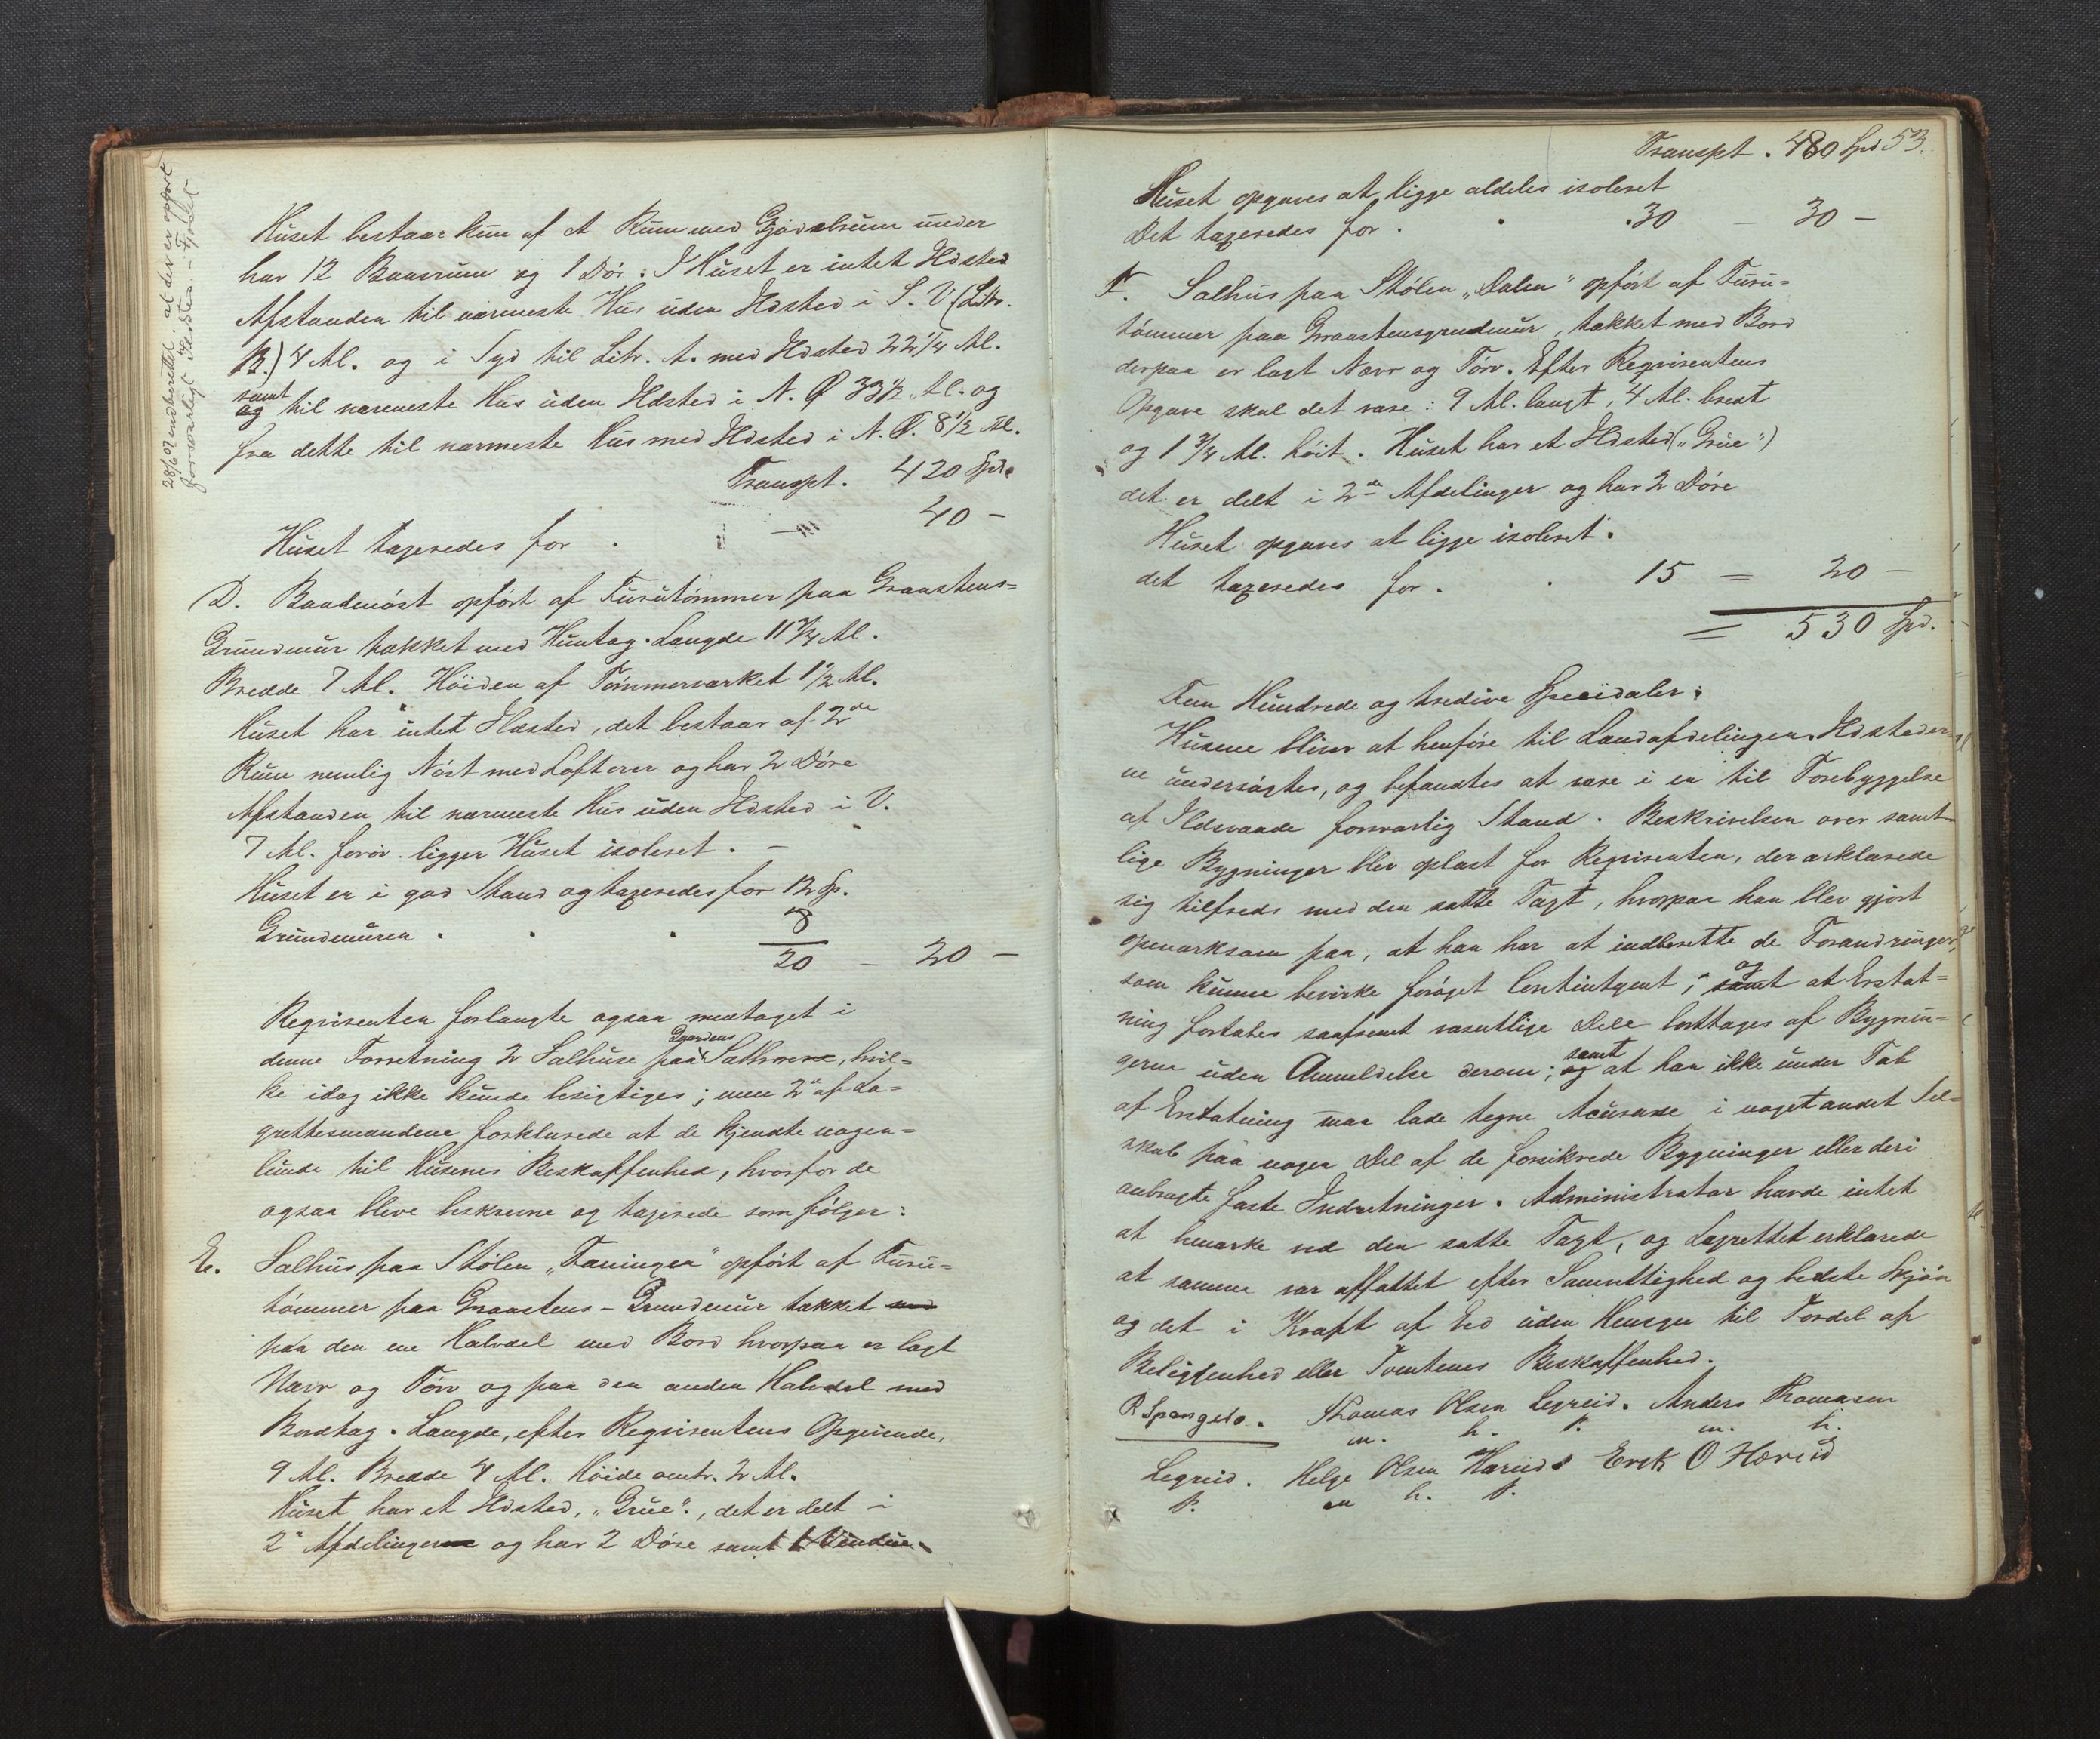 28/6 07 indberettet at der er opført
forsvarligt Ildsted i Fjøset
Huset bestaar kun af et Rum med Gjødselrum under
har 12 Baasrum og 1 Dør. I Huset er intet Ildsted
Afstanden til nærmeste Hus uden Ildsted i S. V (Litr.
B.) 4 Al. og i Syd til Litr. A. med Ildsted 22 1/4 Al.
samt
og til nærmeste Hus uden Ildsted i N. Ø 33 1/2 Al. og
fra dette til nærmeste Hus med Ildsted i N. Ø. 8 1/2 Al.
Transpt. 420 Spd.
Huset taxeredes for . 40 –
D. Baadenøst opført af Furutømmer paa Graastens-
Grundmur tækket med Huntag. Længde 11 3/4 Al.
Bredde 7 Al. Høiden af Tømmerværket 1 1/2 Al.
Huset har intet Ildsted, det bestaar af 2de
Rum nemlig Nøst med Loft over og har 2 Døre
Afstanden til nærmeste Hus uden Ildsted i V.
7 Al. forøv. ligger Huset isoleret. –
Huset er i god Stand og taxeredes for 12 Sp.
Grundmuren . . . 8
20 – 20 –
Reqvirenten forlangte ogsaa medtaget i
Gaardens
denne Forretning 2 Sælhuse paa Sætrene, hvil-
ke idag ikke kunde besigtiges; men 2de af La-
grettesmændene forklarede at de kjendte nogen-
lunde til Husenes Beskaffenhed, hvorfor de
ogsaa bleve beskrevne og taxerede som følger:
E. Sælhus paa Stølen „Faninger“ opført af Furu-
tømmer paa Graastens-Grundmur tækket med
paa den ene Halvdel med Bord hvorpaa er lagt
Næver og Tørv og paa den anden Halvdel med
Bordtag. Længde, efter Reqvirentens Opgivende,
9 Al. Bredde 4 Al. Høide omtr. 2 Al.
Huset har et Ildsted, „Grue“, det er delt i
2de Afdelinger og har 2 Døre samt 1 Vindue.
Transpt. 480 Spd 53.
Huset opgaves at ligge aldeles isoleret
Det taxeredes for . . 30 – 30 –
F. Sælhus paa Stølen „Dalen“ opført af Furu-
tømmer paa Graastensgrundmur, tækket med Bord
derpaa er lagt Næver og Tørv. Efter Reqvirentens
Opgave skal det være: 9 Al. langt, 4 Al. bredt
og 1 3/4 Al. høit. Huset har et Ildsted („Grue“)
det er delt i 2de Afdelinger og har 2 Døre
Huset opgaves at ligge isoleret.
det taxeredes for . . 15 = 20 –
= 530 Spd.
Fem Hundrede og tredive Speciedaler.
Husene bliver at henføre til Landafdelingen. Ildstederne
ne undersøgtes, og befandtes at være i en til Forebyggelse
af Ildsvaade forsvarlig Stand. Beskrivelsen over samt-
lige Bygninger blev oplæst for Reqvirenten, der erklærede
sig tilfreds med den satte Taxt, hvorpaa han blev gjort
opmærksom paa, at han har at indberette de Forandringer,
og
som kunne bevirke forøget Contintgent; samt at Erstat-
ning fortabes saafremt væsentlige Dele borttages af Bygnin-
samt
gerne uden Anmeldelse derom; og at han ikke under Tab
af Erstatning maa lade tegne Assurance i noget andet Sel-
skab paa nogen Del af de forsikrede Bygninger eller deri
anbragte faste Indretninger. Administrator havde intet
at bemærke ved den satte Taxt, og Lagrettet erklærede
at samme var affattet efter Samvittighed og bedste Skjøn
og det i Kraft af Ed uden Hensyn til Fordel af
Beliggenhed eller Tomtenes Beskaffenhed.
R Spangelo. Thomas Olsen Legreid. Anders Thomasen
m. h. P. m. h.
Legreid. Helge Olsen Hæreid Erek O Hæreid
P. m h. P.